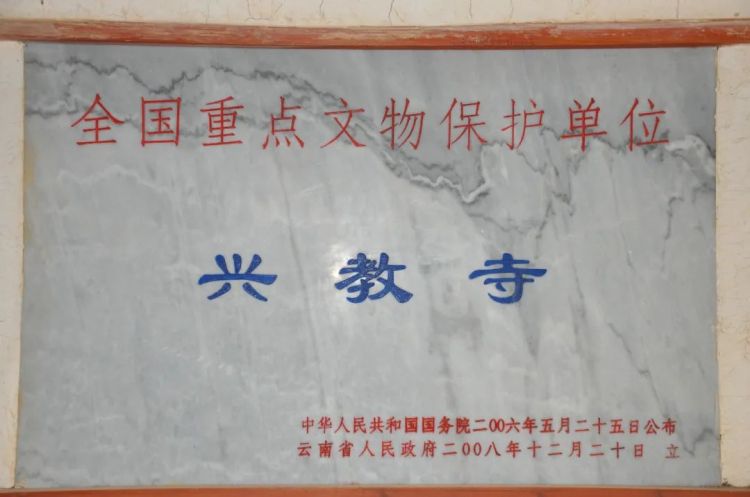 全国重点文物保护单位
兴教寺
中华人民共和国国务院二00六年五月二十五日公布
云南省人民政府二00八年十二月二十日 立